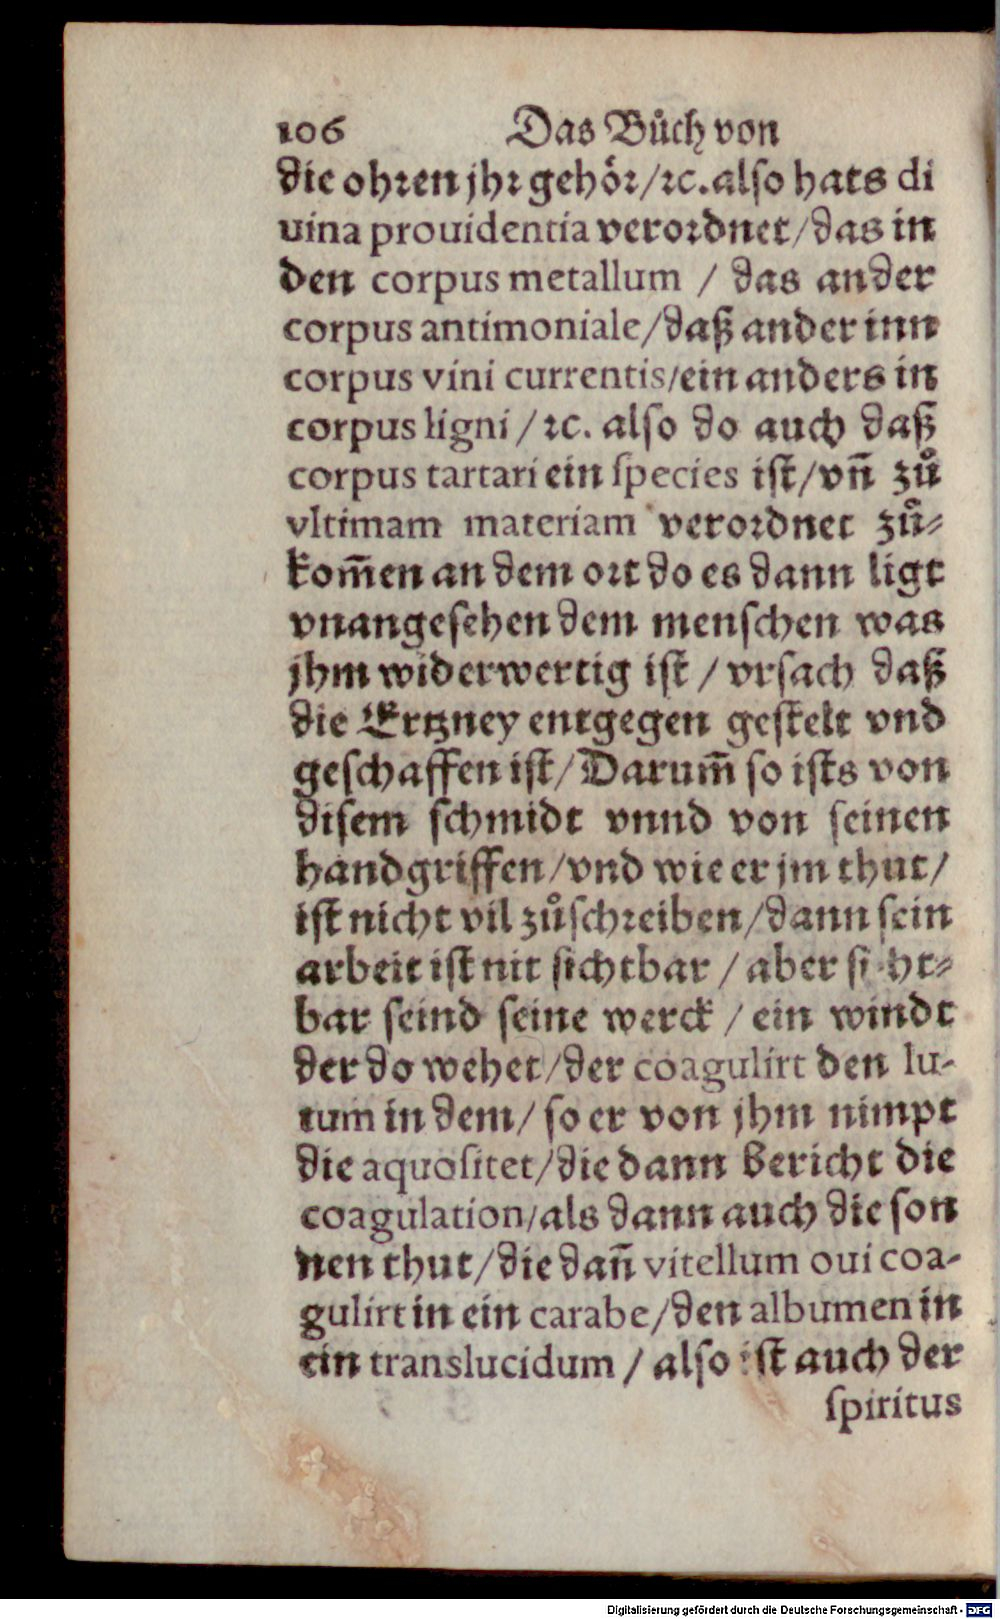 106 Das Bůch von
die ohren jhr gehoͤr/ꝛc. also hats di
uina prouidentia verordnet/das in
den corpus metallum / das ander
corpus antimoniale/daß ander inn
corpus vini currentis/ein anders in
corpus ligni/ꝛc. also do auch daß
corpus tartari ein species ist/vñ zů
vltimam materiam verordnet zů⸗
kom̃en an dem ort do es dann ligt
vnangesehen dem menschen was
jhm widerwertig ist / vrsach daß
die Ertzney entgegen gestelt vnd
geschaffen ist/Darum̃ so ists von
disem schmidt vnnd von seinen
handgriffen/vnd wie er jm thut/
ist nicht vil zůschreiben/dann sein
arbeit ist nit sichtbar / aber sicht⸗
bar seind seine werck / ein windt
der do wehet/der coagulirt den lu-
tum in dem/ so er von jhm nimpt
die aquositet/die dann bericht die
coagulation/als dann auch die son
nen thut/die dañ vitellum oui coa-
gulirt in ein carabe/den albumen in
ein translucidum / also ist auch der
spiritus
Digitalisierung gefördert durch die Deutsche Forschungsgemeinschaft - DFG